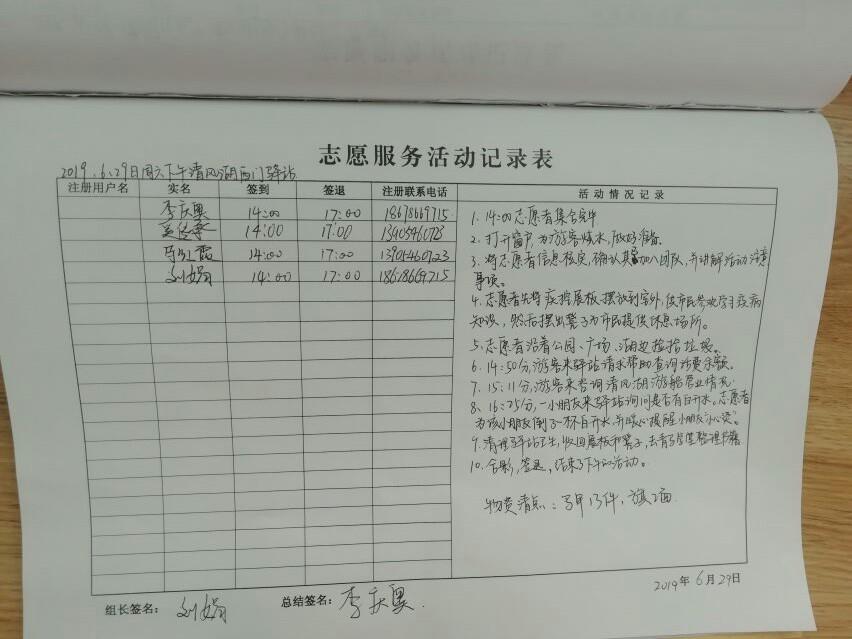 志愿服务活动记录表
2019.6.29日周六下午清风湖西门驿站
注册用户名 实名 签到 签退 注册联系电话 活动情况记录
李庆奥 14:00 17:00 18678669715
14:00 17:00
14:00 17:00
刘娟 14:00 17:00 18678669715
1. 14:00志愿者集合完毕
2. 打开窗户,为游客烧水,做好准备。
3. 将志愿者信息核实,确认其加入团队,并讲解活动注意
事项。
4. 志愿者先将疾控展板摆放到室外,供市民参观学习疫病
知识,然后摆出凳子为市民提供休息场所。
5. 志愿者沿着公园、广场、湖边捡拾垃圾。
6. 14:50分,游客来驿站请求帮助查询话费余额。
7. 15:11分,游客来咨询清风湖游船营业情况
8、16:25分,一小朋友来驿站询问是否有白开水。志愿者
为该小朋友倒了一杯白开水,并暖心提醒小朋友“小心烫”。
9. 清理驿站卫生,收回展板和凳子,去青年之家整理书籍
10. 合影,签退,结束了下午的活动。
物资清点:马甲13件,旗2面
2019年6月29日
组长签名: 刘娟 总结签名: 李庆奥.